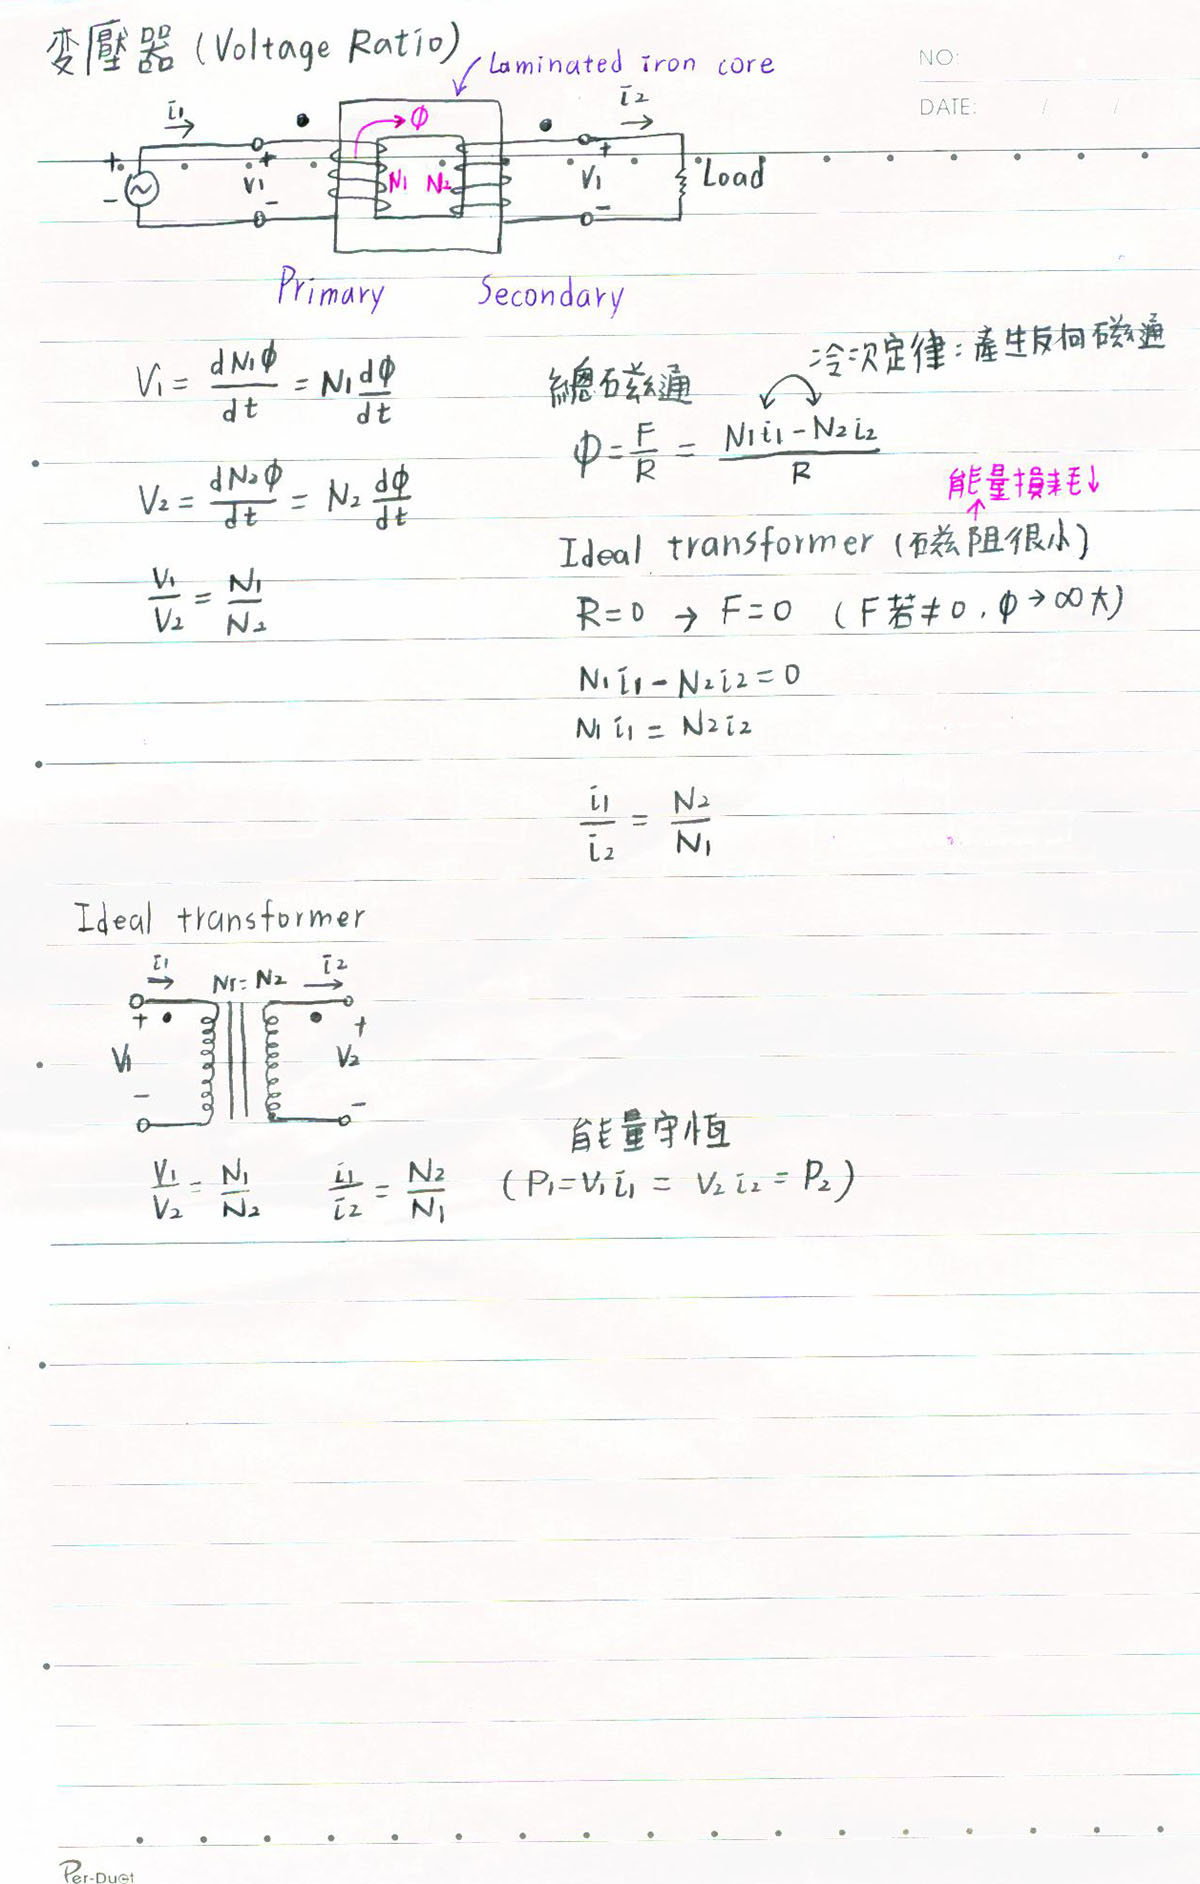 變壓器 (Voltage Ratio)
Laminated iron core
NO:
DATE: / /
i1
ϕ
i2
+
-
V1
+
-
N1 N2
V1
+
-
Load
Primary Secondary
V1 = dN1ϕ/dt = N1 dϕ/dt
V2 = dN2ϕ/dt = N2 dϕ/dt
V1/V2 = N1/N2
冷次定律:產生反向磁通
總磁通
ϕ = F/R = (N1i1 - N2i2)/R
能量損耗↓
Ideal transformer (磁阻很小)
R=0 → F=0 (F若≠0, ϕ→∞大)
N1i1 - N2i2 = 0
N1i1 = N2i2
i1/i2 = N2/N1
Ideal transformer
i1 N1= N2 i2
+ +
V1 V2
- -
能量守恆
V1/V2 = N1/N2 i1/i2 = N2/N1 (P1=V1i1 = V2i2 = P2)
Per-Duet